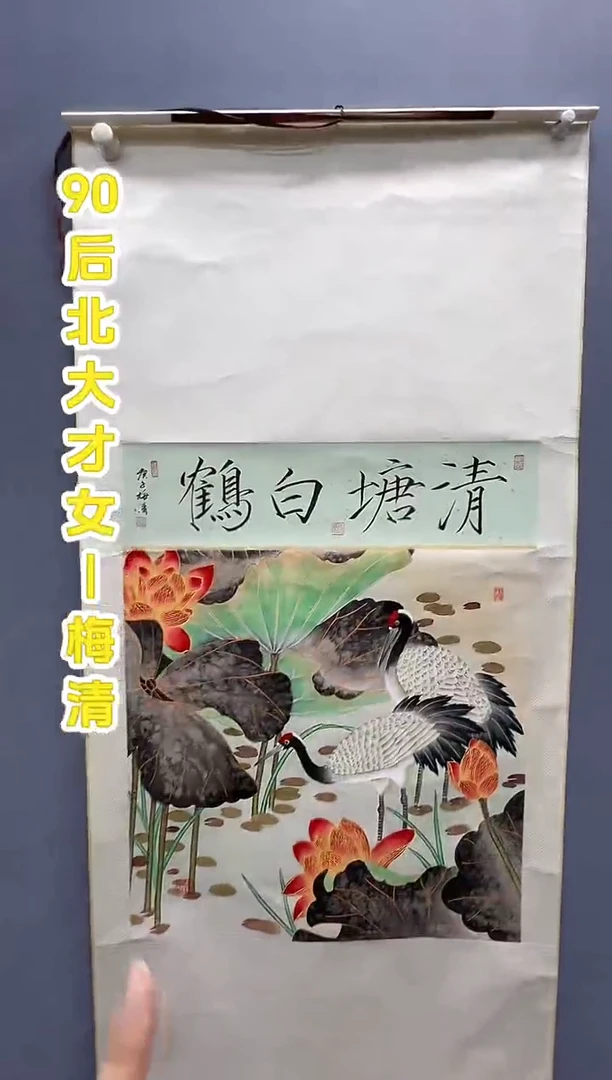 90后北大才女|梅清
清塘白鶴
庚子梅清